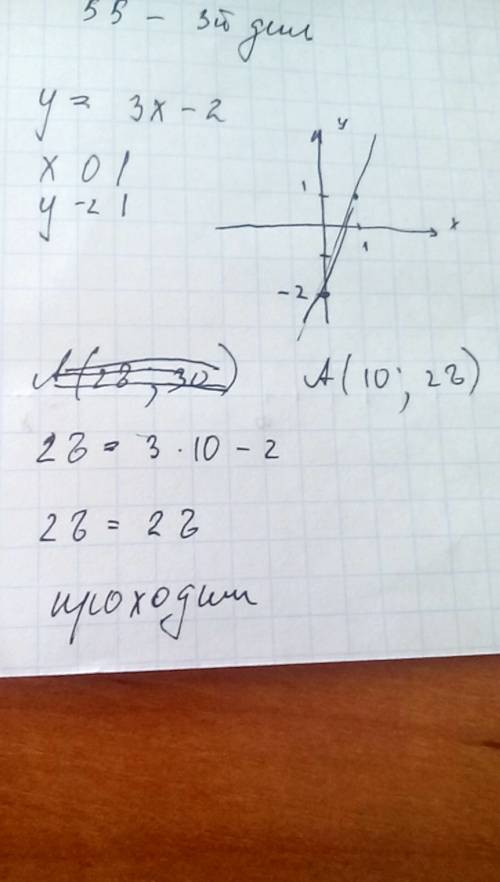 55 -
y = 3x - 2
x 0 1
y -2 1
y
1
x
1
-2
A(28; 30)
A(10; 28)
28 = 3 · 10 - 2
28 = 28
проходит